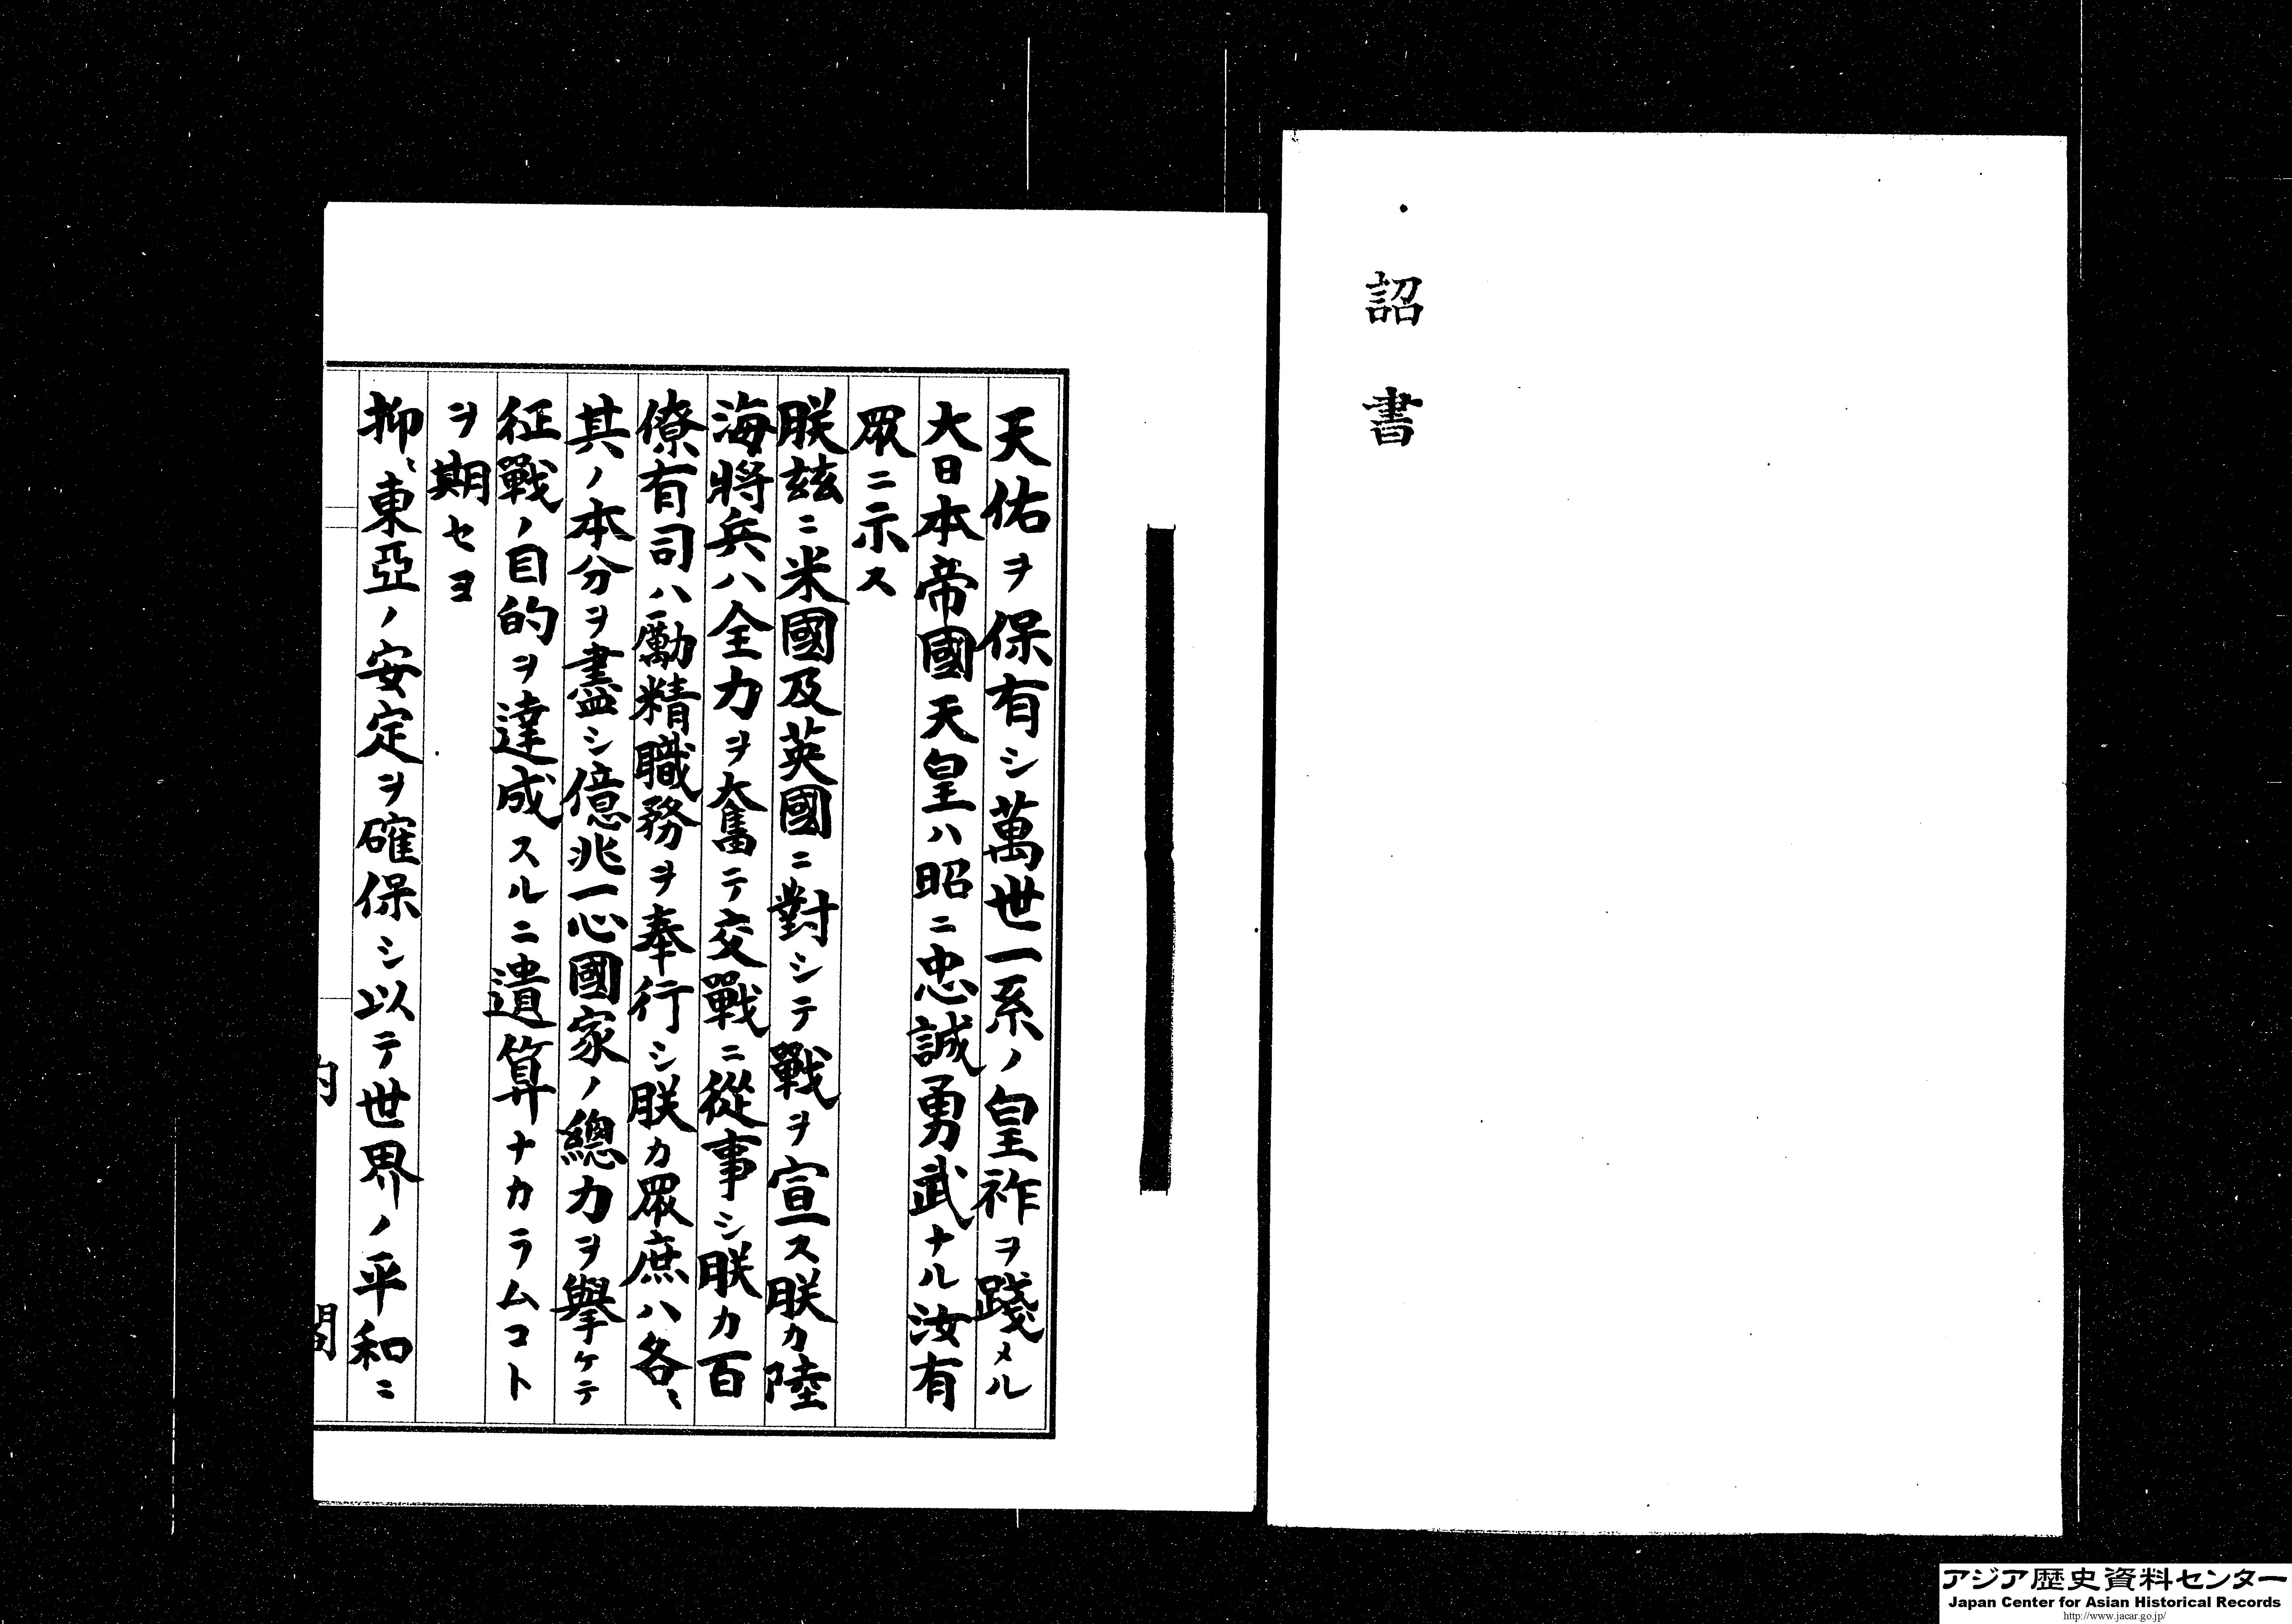 詔書
天佑ヲ保有シ萬世一系ノ皇祚ヲ踐メル
大日本帝國天皇ハ昭ニ忠誠勇武ナル汝有
眾ニ示ス
朕玆ニ米國及英國ニ對シテ戰ヲ宣ス朕カ陸
海將兵ハ全力ヲ奮テ交戰ニ從事シ朕カ百
僚有司ハ勵精職務ヲ奉行シ朕カ眾庶ハ各〻
其ノ本分ヲ盡シ億兆一心國家ノ總力ヲ擧ケテ
征戰ノ目的ヲ達成スルニ遺算ナカラムコト
ヲ期セヨ
抑〻東亞ノ安定ヲ確保シ以テ世界ノ平和ニ
アジア歴史資料センター
Japan Center for Asian Historical Records
http://www.jacar.go.jp/